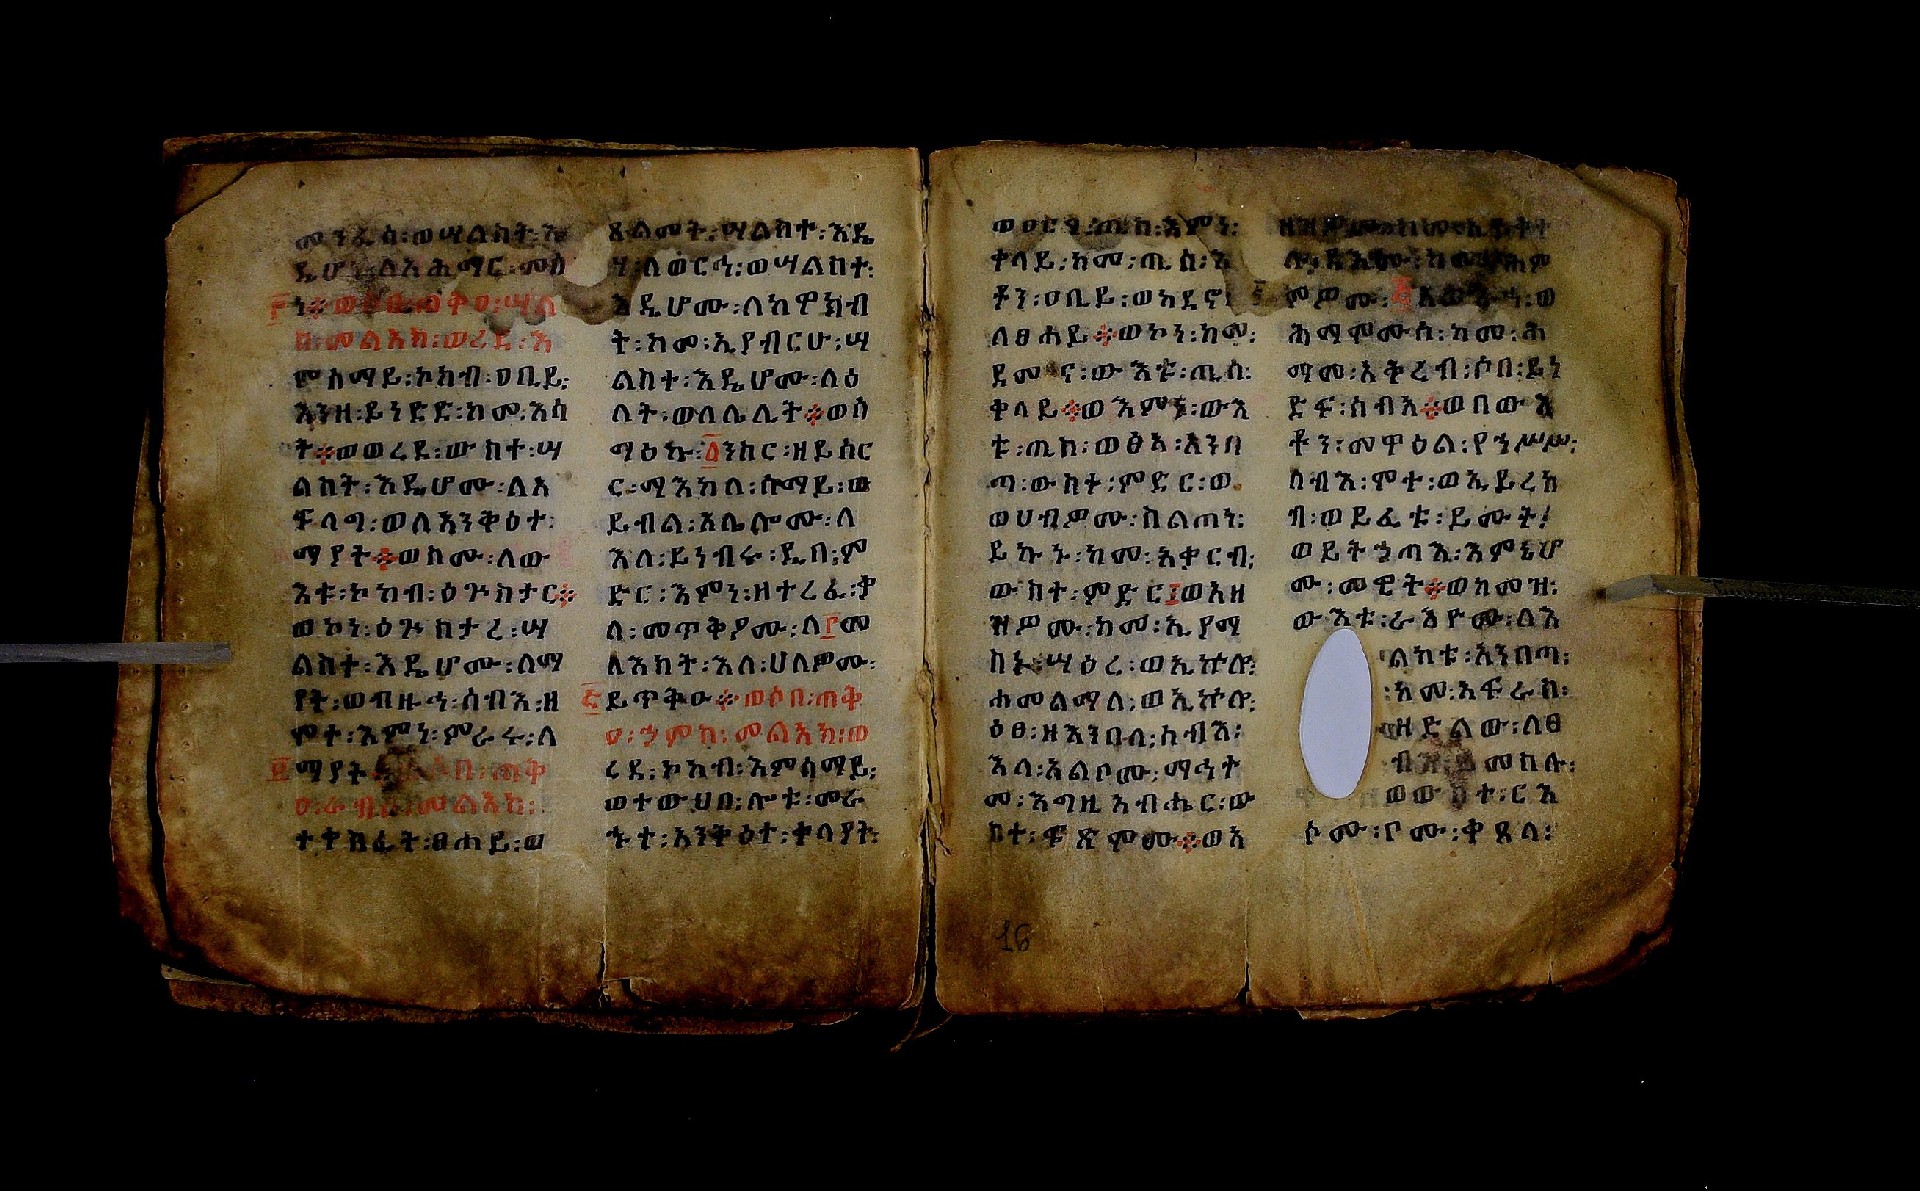 መንፈሰ፡ወሣልስት፡እ
ዴሆሙ፡ለአሕማር፡መስ
፫ነ፨ወሶበ፡ጠቅዐ፡ሣል
ስ፡መልአክ፡ወረደ፡እ
ምሰማይ፡ኮከብ፡ዐቢይ፡
እንዘ፡ይነድድ፡ከመ፡እሳ
ት፨ወወረደ፡ውስተ፡ሣ
ልስት፡እዴሆሙ፡ለአ
ፍላግ፡ወለአንቅዕተ፡
ማያት፨ወስሙ፡ለው
እቱ፡ኮከብ፡ዕጕስታር፨
ወኮነ፡ዕጕስታረ፡ሣ
ልስተ፡እዴሆሙ፡ለማ
የት፡ወብዙኅ፡ሰብእ፡ዘ
ሞተ፡እምነ፡ምራሩ፡ለ
፬ማያት፨ወሶበ፡ጠቅ
ዐ፡ራብዕ፡መልአክ፡
ተቀሥፈት፡ፀሐይ፡ወ
ጸልመት፡ሣልስተ፡እዴ
ሃ፡ለወርኅ፡ወሣልስተ፡
እዴሆሙ፡ለከዋክብ
ት፡ከመ፡ኢያብርሁ፡ሣ
ልስተ፡እዴሆሙ፡ለዕ
ለት፡ወለሌሊት፨ወሰ
ማዕኩ፡፩ንስር፡ዘይሰር
ር፡ማእከለ፡ሰማይ፡ወ
ይብል፡አሌሎሙ፡ለ
እለ፡ይነብሩ፡ዲበ፡ም
ድር፡እምነ፡ዘተረፈ፡ቃ
ለ፡መጥቅዖሙ፡ለ፫መ
ላእክት፡እለ፡ሀለዎሙ፡
፭ይጥቅዑ፨ወሶበ፡ጠቅ
ዐ፡ኃምስ፡መልአክ፡ወ
ረደ፡ኮከብ፡እምሰማይ፡
ወተውህበ፡ሎቱ፡መራ
ኁተ፡አንቅዕተ፡ቀላያት፡
ወዐርገ፡ጢስ፡እምነ፡
ቀላይ፡ከመ፡ጢሰ፡እ
ቶን፡ዐቢይ፡ወአደኖ
ለፀሐይ፨ወኮነ፡ከመ፡
ደመና፡ውእቱ፡ጢስ፡
ቀላይ፨ወእምኔ፡ውእ
ቱ፡ጢስ፡ወፅአ፡አንበ
ጣ፡ውስተ፡ምድር፡ወ
ወሀብዎሙ፡ሥልጠነ፡
ይኩኑ፡ከመ፡አቃርብ፡
ውስተ፡ምድር፤ወአዘ
ዝዎሙ፡ከመ፡ኢያማ
ስኑ፡ሣዕረ፡ወኢኵሎ፡
ሐመልማለ፡ወኢኵሎ፡
ዕፀ፡ዘእንበለ፡ሰብእ፡
እለ፡አልቦሙ፡ማኅት
መ፡እግዚአብሔር፡ው
ስተ፡ፍጽሞሙ፨ወአ
ሕማሞሙሰ፡ከመ፡ሕ
ማመ፡አቅረብ፡ሶበ፡ይነ
ድፍ፡ሰብአ፨ወበውእ
ቶን፡መዋዕል፡የኀሥሥ፡
ሰብእ፡ሞተ፡ወኢይረክ
ብ፡ወይፈቱ፡ይሙት፤
ወይትኃጣእ፡እምኔሆ
ሙ፡መዊት፨ወከመዝ፡
ውእቱ፡ራእዮሙ፡ለእ
ልክቱ፡አንበጣ፡
ከመ፡አፍራስ፡
ዘድልው፡ለፀ
ብእ፡
ወውስተ፡ርእ
ሶሙ፡ቦሙ፡ቀጸላ፡